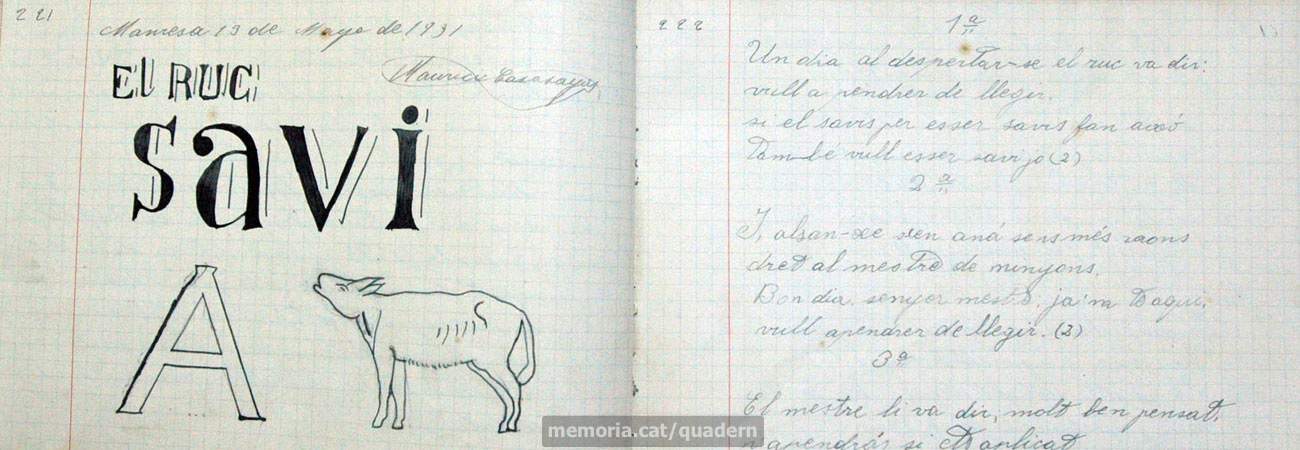 221
Manresa 13 de Mayo de 1931
Maurici Casasayas
El RUC
savi
A
222
1ª
Un dia al despertar-se el ruc va dir:
vull a pendrer de llegir.
si el savis per esser savis fan això
Tam-be vull esser savi jo (2)
2ª
I, alsan-xe sen aná sens més raons
dret al mestre de minyons.
Bon dia senyor mestre, ja'm té aqui,
vull apendrer de llegir. (2)
3ª
El mestre li va dir, molt ben pensat,
apendrás si ets aplicat
memoria.cat/quadern